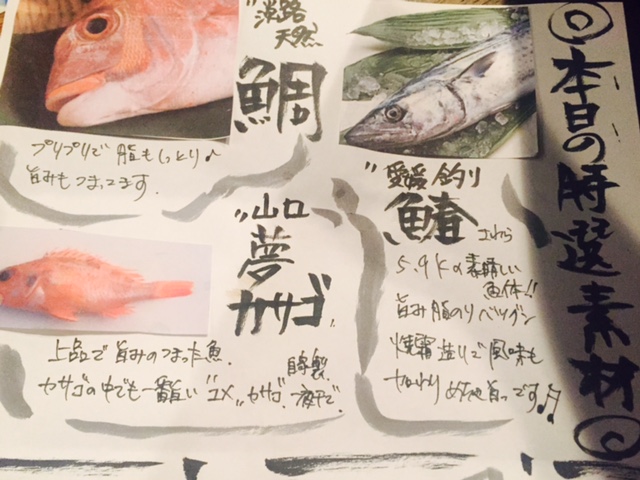 本日の特選素材
愛媛釣り
鰆 さわら
5.9Kの素晴しい
魚体!!
旨み脂のりバツグン
焼霜造りで風味も
加わりめちゃ旨っです♫
淡路
天然
鯛
プリプリで脂もしっとり♪
旨みもつまってます。
山口
夢
カサゴ
上品で旨みのつまった魚。
カサゴの中でも一番旨い"ユメカサゴ"
自製